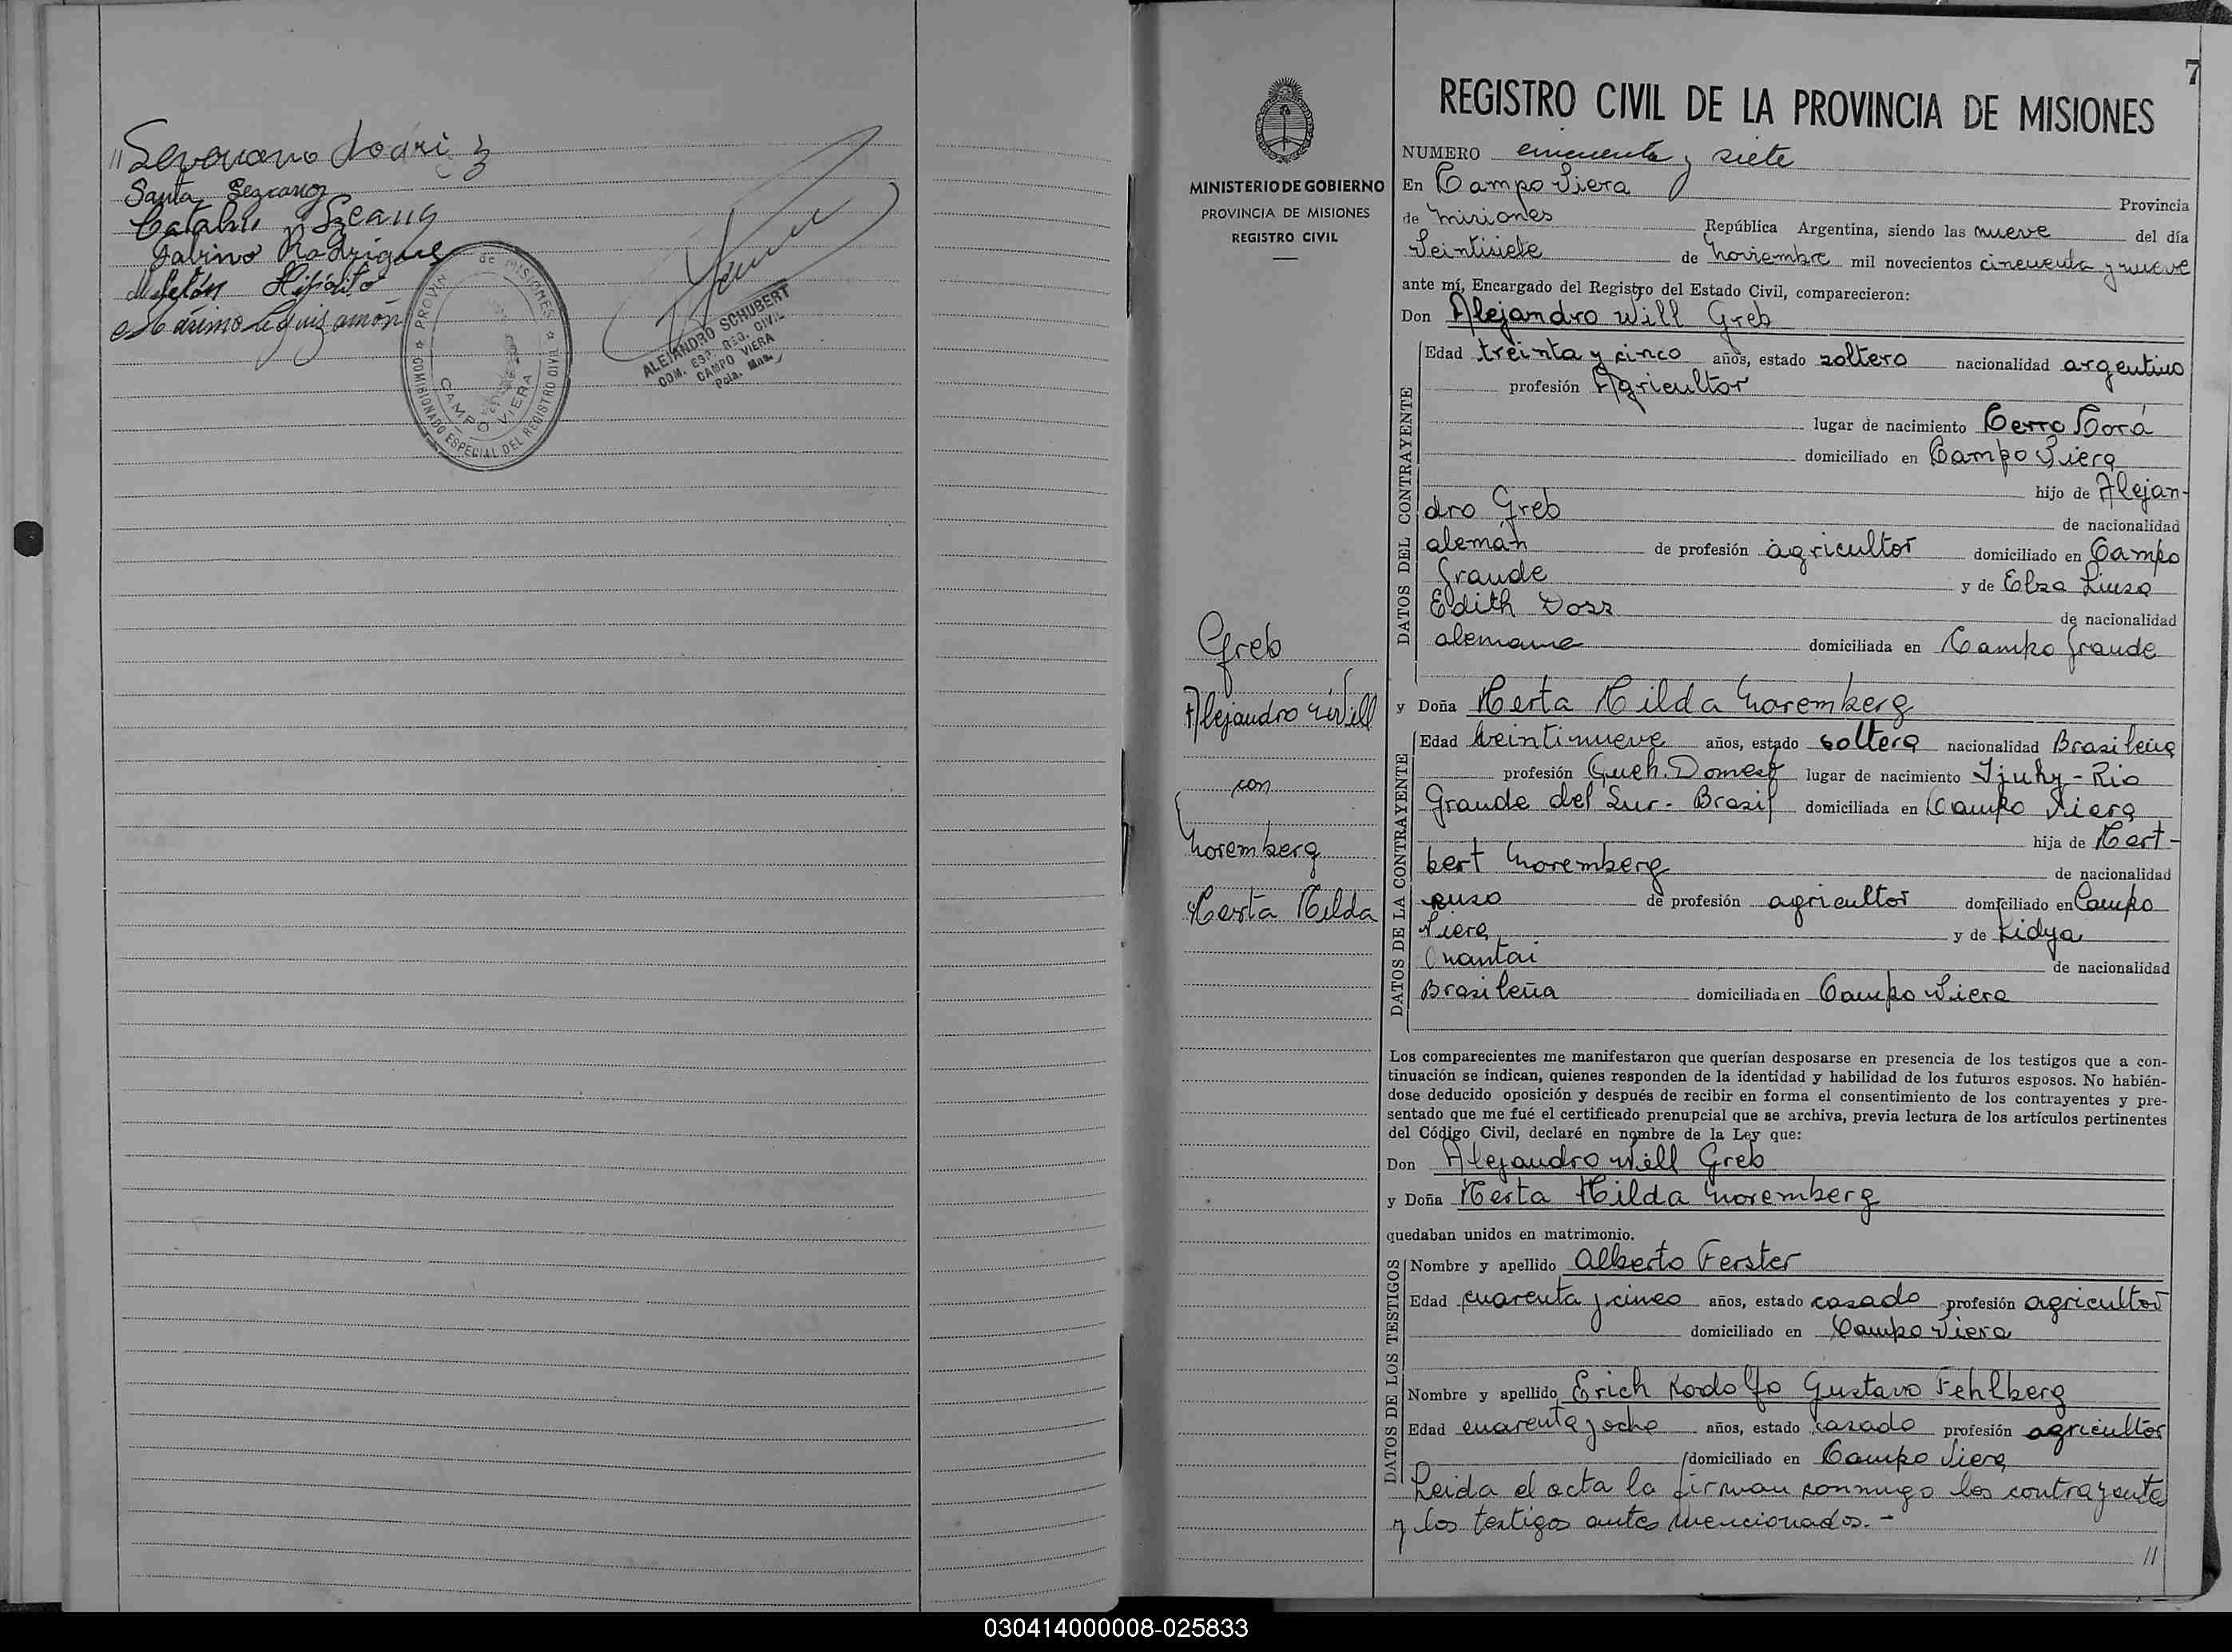 Santa
Gabino Rodrigue
Hipólito
PROVIN de MISIONES
COMISIONADO ESPECIAL DEL REGISTRO CIVIL
CAMPO VIERA
ALEJANDRO SCHUBERT
COM. ESP. REG. CIVIL
CAMPO VIERA
Pcia. Mnes.
7
MINISTERIO DE GOBIERNO
PROVINCIA DE MISIONES
REGISTRO CIVIL
Greb
Alejandro Will
con
Noremberg
Herta Hilda
REGISTRO CIVIL DE LA PROVINCIA DE MISIONES
NUMERO cincuenta y siete
En Campo Viera Provincia
de Misiones República Argentina, siendo las nueve del día
Veintisiete de Noviembre mil novecientos cincuenta y nueve
ante mí, Encargado del Registro del Estado Civil, comparecieron:
Don Alejandro Will Greb
DATOS DEL CONTRAYENTE
Edad treinta y cinco años, estado soltero nacionalidad argentino
profesión Agricultor
lugar de nacimiento Cerro Corá
domiciliado en Campo Viera
hijo de Alejan-
dro Greb de nacionalidad
alemán de profesión agricultor domiciliado en Campo
Grande y de Elza Luisa
Edith Doss de nacionalidad
alemana domiciliada en Campo Grande
y Doña Herta Hilda Noremberg
DATOS DE LA CONTRAYENTE
Edad veintinueve años, estado soltera nacionalidad Brasileña
profesión Queh. Domest lugar de nacimiento Ijuhy - Rio
Grande del Sur - Brasil domiciliada en Campo Viera
hija de Hert-
bert Noremberg de nacionalidad
ruso de profesión agricultor domiciliado en Campo
Viera y de Lidya
de nacionalidad
Brasileña domiciliada en Campo Viera
Los comparecientes me manifestaron que querían desposarse en presencia de los testigos que a con-
tinuación se indican, quienes responden de la identidad y habilidad de los futuros esposos. No habién-
dose deducido oposición y después de recibir en forma el consentimiento de los contrayentes y pre-
sentado que me fué el certificado prenupcial que se archiva, previa lectura de los artículos pertinentes
del Código Civil, declaré en nombre de la Ley que:
Don Alejandro Will Greb
y Doña Herta Hilda Noremberg
quedaban unidos en matrimonio.
DATOS DE LOS TESTIGOS
Nombre y apellido Alberto Ferster
Edad cuarenta y cinco años, estado casado profesión agricultor
domiciliado en Campo Viera
Nombre y apellido Erich Rodolfo Gustavo Fehlberg
Edad cuarenta y ocho años, estado casado profesión agricultor
domiciliado en Campo Viera
Leida el acta la firman conmigo los contrayentes
y los testigos antes mencionados. -
//
030414000008-025833